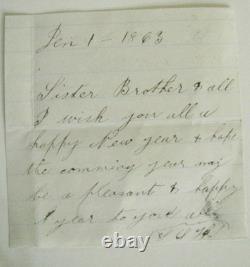 Jen 1 - 1863
Sister Brother & all
I wish you all a
happy New year & hope
the comming year may
be a pleasant & happy
year to you all